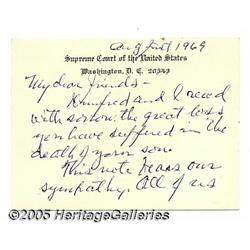 August 1969
Supreme Court of the United States
Washington, D. C. 20543
My dear friends –
Winifred and I read
with sorrow the great loss
you have suffered in the
death of your son.
This note bears our
sympathy. All of us
©2005 HeritageGalleries